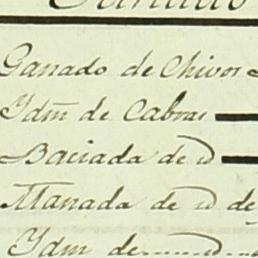 Ganado de Chivos
Ydm de Cabras
Baciada de id
Manada de id de
Ydm de id